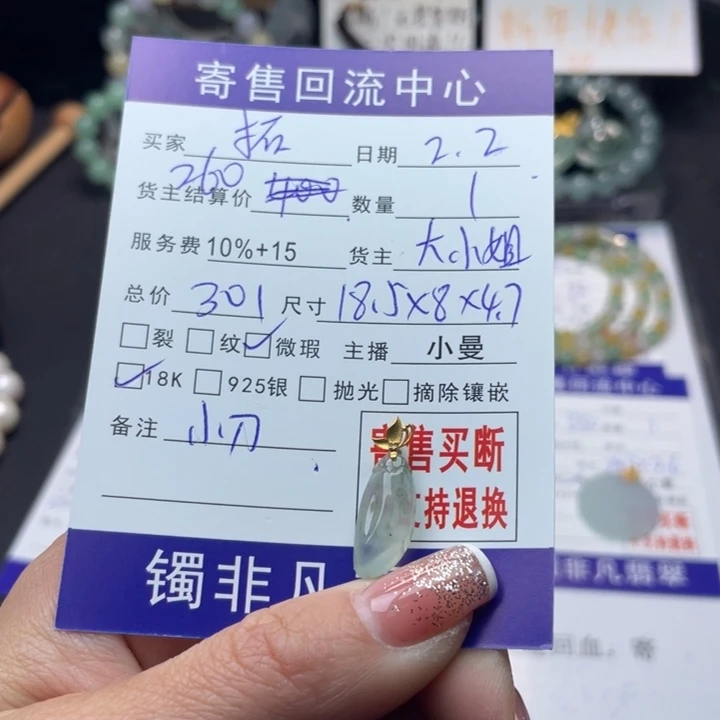 寄售回流中心
买家 拓 日期 2.2
货主结算价 260 400 数量 1
服务费 10%+15 货主 大小姐
总价 301 尺寸 18.5×8×4.7
裂 纹 微瑕 主播 小曼
18K 925银 抛光 摘除镶嵌
备注 小刀
寄售买断
支持退换
镯非凡